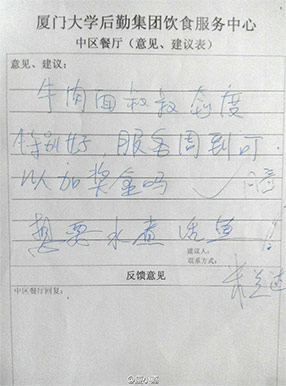 厦门大学后勤集团饮食服务中心
中区餐厅（意见、建议表）
意见、建议：
牛肉面叔叔态度
特别好 服务周到可
以加奖金吗
想要水煮活鱼！
建议人：
联系方式：
反馈意见
中区餐厅回复：